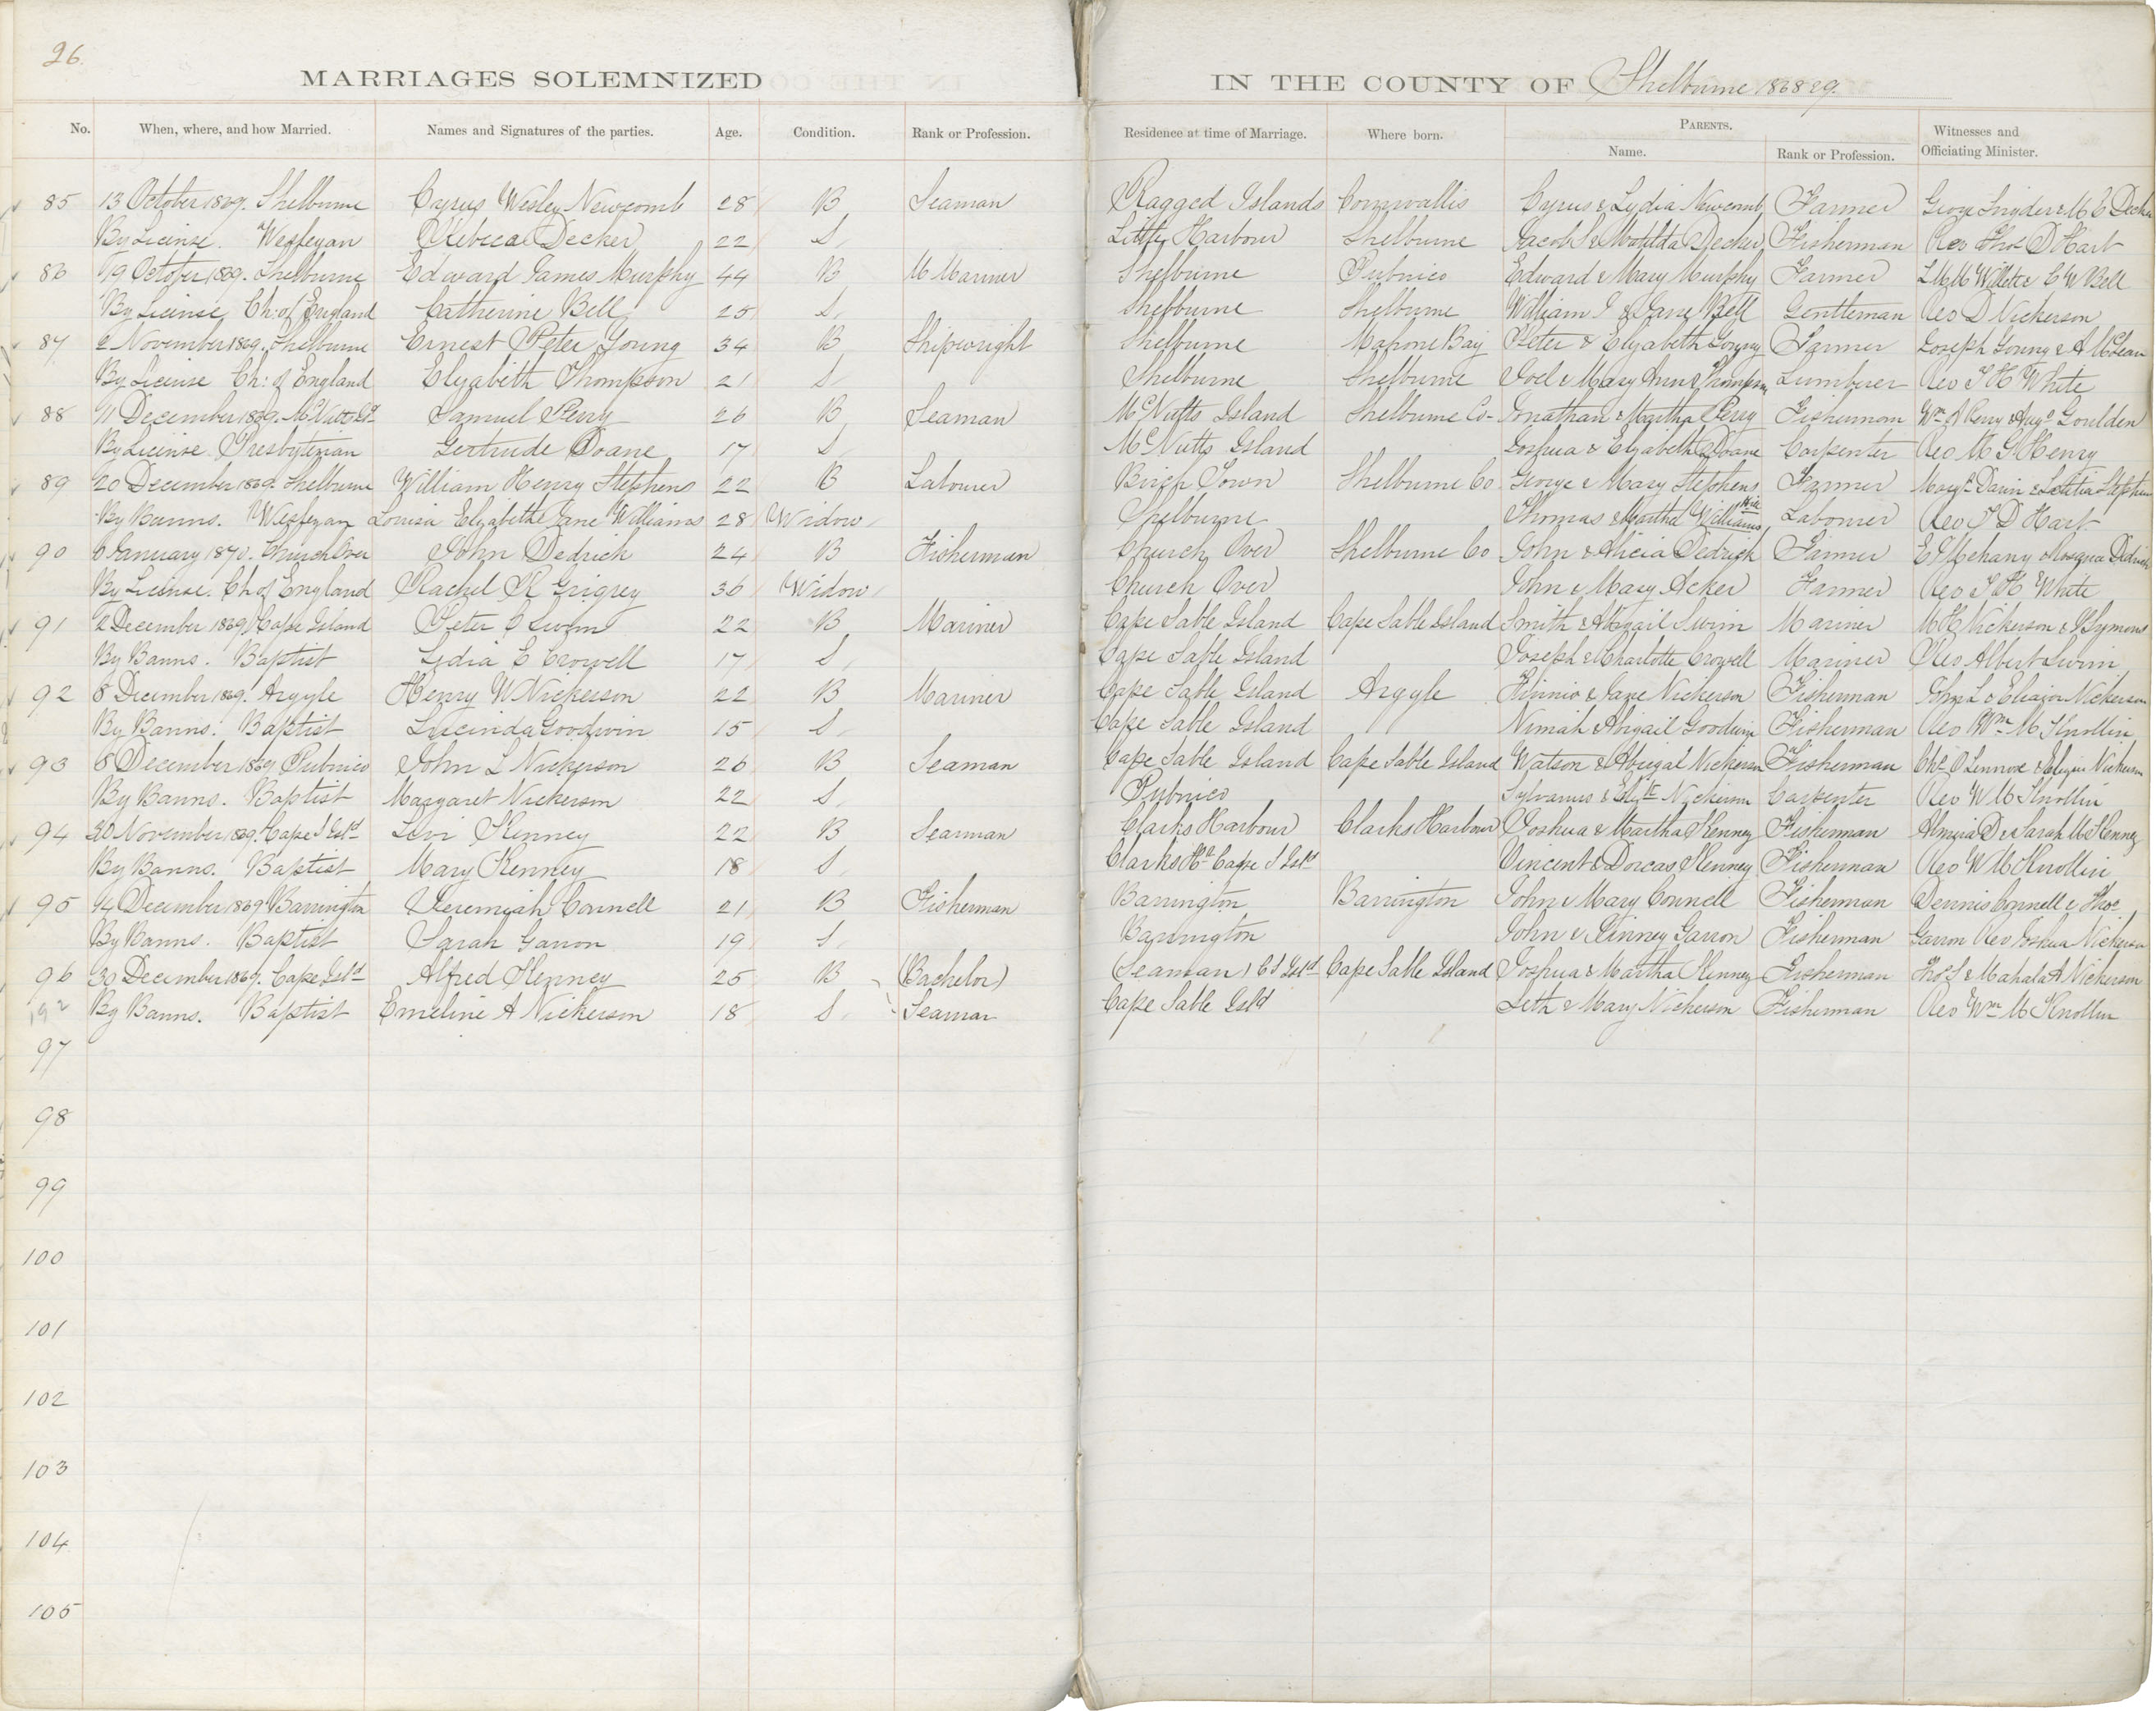 26.
MARRIAGES SOLEMNIZED IN THE COUNTY OF Shelburne 1868 & 9.
No. When, where, and how Married. Names and Signatures of the parties. Age. Condition. Rank or Profession. Residence at time of Marriage. Where born. PARENTS. Name. Rank or Profession. Witnesses and Officiating Minister.
85 13 October 1869. Shelburne Cyrus Wesley Newcomb 28 B Seaman Ragged Islands Cornwallis Cyrus & Lydia Newcomb Farmer George Snyder & M C Decker
By License. Wesleyan Rebecca Decker 22 S Little Harbour Shelburne Jacob S & Matilda Decker Fisherman Rev Thos D Hart
86 19 October 1869. Shelburne Edward James Murphy 44 B M Mariner Shelburne Pubnico Edward & Mary Murphy Farmer C W Bell
By License Ch: of England Catherine Bell 25 S Shelburne Shelburne William J & Jane Bell Gentleman Rev D Nickerson
87 2 November 1869. Shelburne Ernest Peter Young 34 B Shipwright Shelburne Mahone Bay Peter & Elizabeth Young Farmer Joseph Young & A McLean
By License Ch: of England Elizabeth Thompson 21 S Shelburne Shelburne Joel & Mary Ann Thompson Lumberer Rev T H White
88 11 December 1869. McNutts Isd Samuel Perry 26 B Seaman McNutts Island Shelburne Co- Jonathan & Martha Perry Fisherman Wm A Perry & Augs Goulden
By License Presbyterian Gertrude Doane 17 S McNutts Island Joshua & Elizabeth Doane Carpenter Rev M G Henry
89 20 December 1869. Shelburne William Henry Stephens 22 B Labourer Birch Town Shelburne Co George & Mary Stephens Farmer & Letitia Stephens
By Banns. Wesleyan Louisa Elizabeth Jane Williams 28 Widow Shelburne Thomas & Martha Williams Labourer Rev T D Hart
90 6 January 1870. Church Over John Dedrick 24 B Fisherman Church Over Shelburne Co John & Alicia Dedrick Farmer E Mehany & Dedrick
By License. Ch of England Rachel R Grigrey 36 Widow Church Over John & Mary Acker Farmer Rev T H White
91 2 December 1869 Cape Island Peter C Swim 22 B Mariner Cape Sable Island Cape Sable Island Smith & Abigail Swim Mariner M H Nickerson & J Symons
By Banns. Baptist Lydia E Crowell 17 S Cape Sable Island Joseph & Charlotte Crowell Mariner Rev Albert Swim
92 8 December 1869. Argyle Henry W Nickerson 22 B Mariner Cape Sable Island Argyle & Jane Nickerson Fisherman John L & Nickerson
By Banns. Baptist Lucinda Goodwin 15 S Cape Sable Island Nimiah & Abigail Goodwin Fisherman Rev Wm M Knollin
93 8 December 1869 Pubnico John L Nickerson 26 B Seaman Cape Sable Island Cape Sable Island Watson & Abigal Nickerson Fisherman Chs O Lennox & Nickerson
By Banns. Baptist Margaret Nickerson 22 S Pubnico Sylvanus & Elizth Nickerson Carpenter Rev W M Knollin
94 30 November 1869. Cape S Isld Levi Kenney 22 B Seaman Clarks Harbour Clarks Harbour Joshua & Martha Kenney Fisherman Almira D & Sarah M Kenney
By Banns. Baptist Mary Kenney 18 S Clarks Hr Cape S Isld Vincent & Dorcas Kenney Fisherman Rev W M Knollin
95 14 December 1869 Barrington Jeremiah Connell 21 B Fisherman Barrington Barrington John & Mary Connell Fisherman Dennis Connell & Thos
By Banns. Baptist Sarah Garron 19 S Barrington John & Garron Fisherman Garron Rev Joshua Nickerson
96 30 December 1869. Cape Isld Alfred Kenney 25 B (Bachelor) (Seaman) C S Isld Cape Sable Island Joshua & Martha Kenney Fisherman Thos S & Mahala A Nickerson
192 By Banns. Baptist Emeline A Nickerson 18 S Seaman Cape Sable Isld Seth & Mary Nickerson Fisherman Rev Wm M Knollin
97
98
99
100
101
102
103
104
105